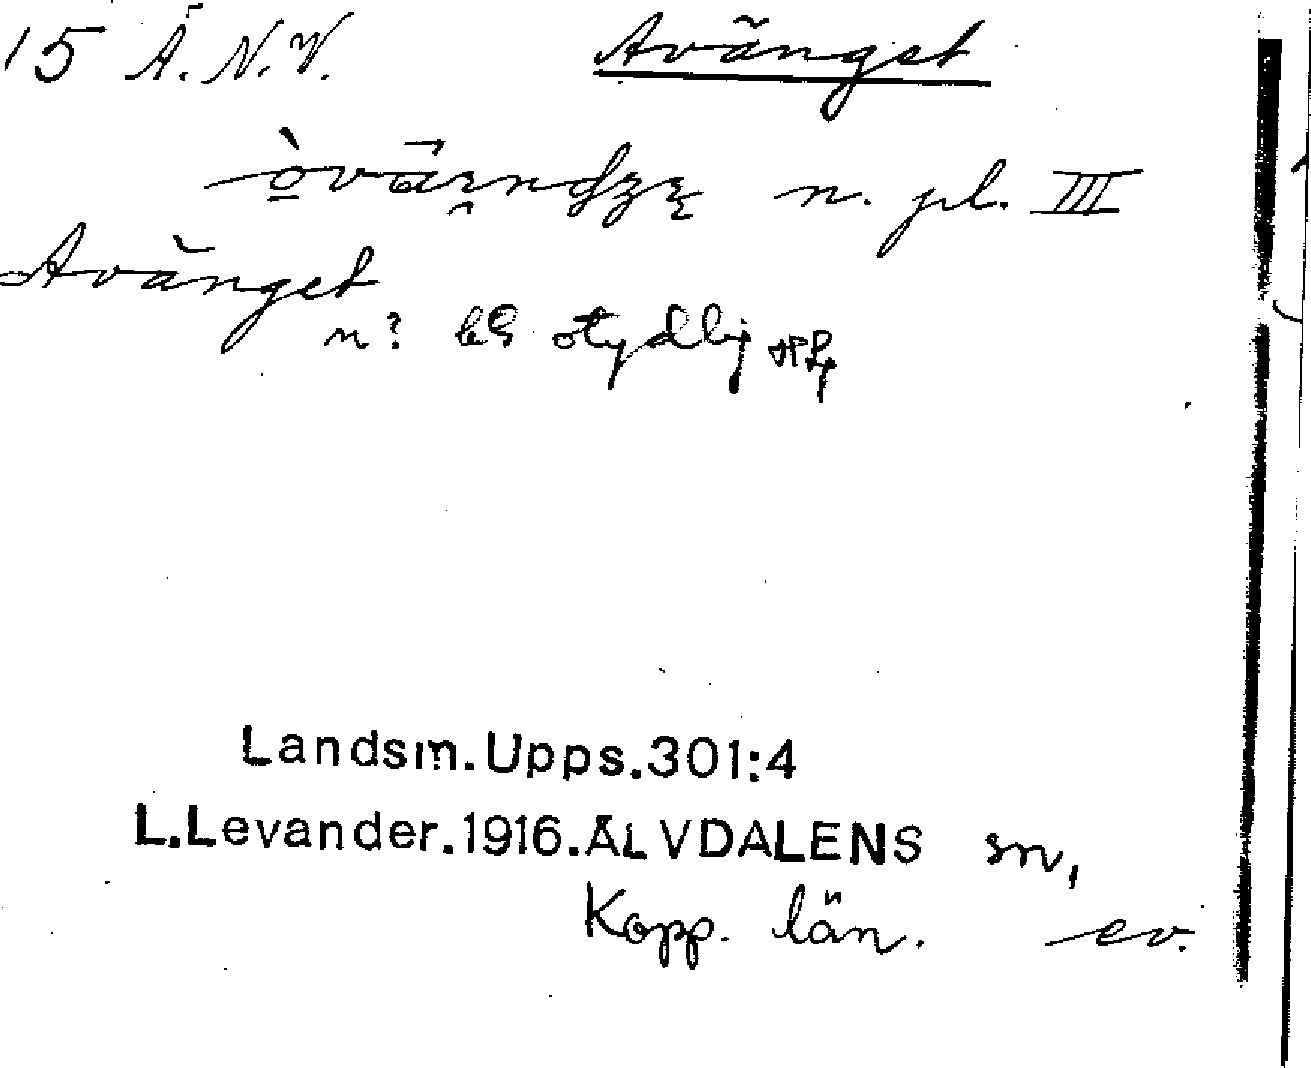 15 Ä.N.V. Avänget
n. pl. III
Avänget
n? otydlig
Landsm.Upps.301:4
L.Levander.1916.ÄLVDALENS sn,
Kopp. län. ev.